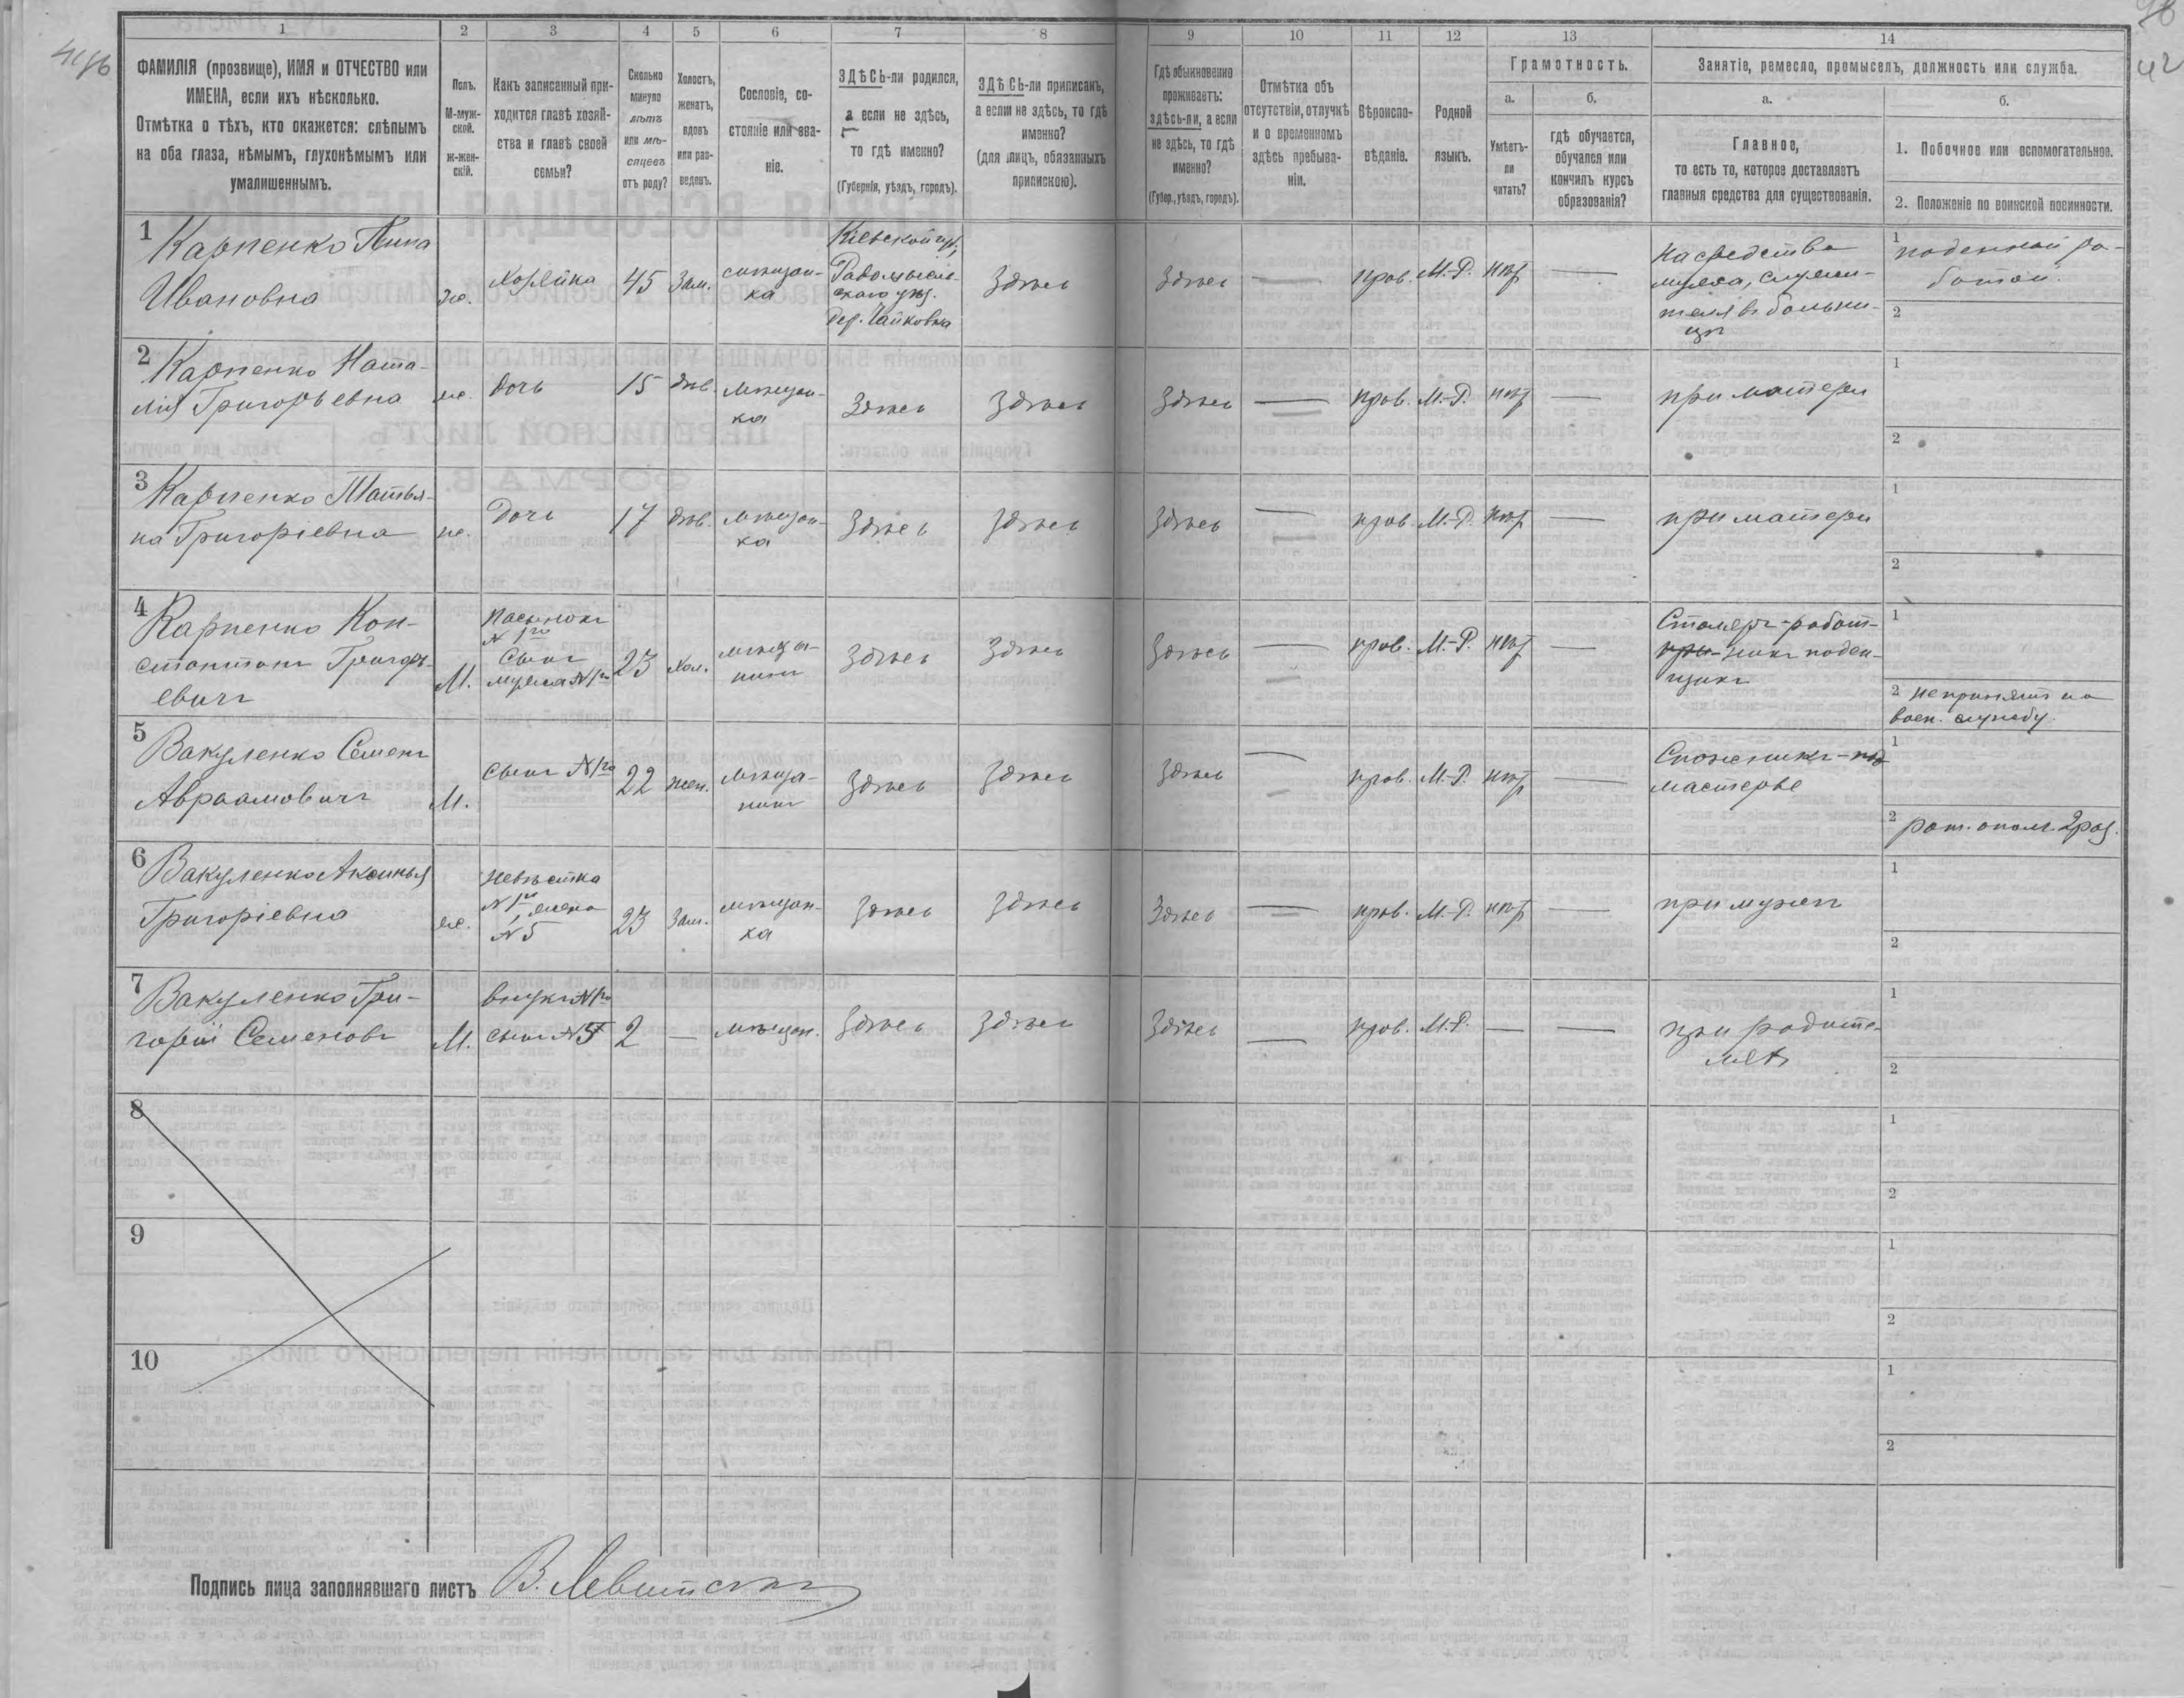 1 2 3 4 5 6 7 8 9 10 11 12 13 14
ФАМИЛІЯ (прозвище), ИМЯ и ОТЧЕСТВО или
ИМЕНА, если ихъ нѣсколько.
Отмѣтка о тѣхъ, кто окажется: слѣпымъ
на оба глаза, нѣмымъ, глухонѣмымъ или
умалишеннымъ.
Полъ.
М-муж-
ской.
ж-жен-
скій.
Какъ записанный при-
ходится главѣ хозяй-
ства и главѣ своей
семьи?
Сколько
минуло
лѣтъ
или мѣ-
сяцевъ
отъ роду?
Холостъ,
женатъ,
вдовъ
или раз-
веденъ.
Сословіе, со-
стояніе или зва-
ніе.
ЗДѢСЬ-ли родился,
а если не здѣсь,
то гдѣ именно?
(Губернія, уѣздъ, городъ).
ЗДѢСЬ-ли приписанъ,
а если не здѣсь, то гдѣ
именно?
(для лицъ, обязанныхъ
припискою).
Гдѣ обыкновенно
проживаетъ:
здѣсь-ли, а если
не здѣсь, то гдѣ
именно?
(Губер., уѣздъ, городъ).
Отмѣтка объ
отсутствіи, отлучкѣ
и о временномъ
здѣсь пребыва-
ніи.
Вѣроиспо-
вѣданіе.
Родной
языкъ.
Грамотность.
а.
Умѣетъ-
ли
читать?
б.
гдѣ обучается,
обучался или
кончилъ курсъ
образованія?
Занятіе, ремесло, промыселъ, должность или служба.
а.
Главное,
то есть то, которое доставляетъ
главныя средства для существованія.
б.
1. Побочное или вспомогательное.
2. Положеніе по воинской повинности.
42
1
Карпенко Анна
Ивановна
Хозяйка
45
Зам.
ка
Кіевской губ.,
Радомысль-
скаго уѣз.
дер. Чайковка
Здѣсь
Здѣсь
прав.
М.-Р.
нѣт
На средства
мужа, служи-
теля въ больни-
цѣ
1
поденной ра-
ботой.
2
2
Карпенко Ната-
лія Григорьевна
дочь
15
дѣв.
мѣщан-
ка
Здѣсь
Здѣсь
Здѣсь
прав.
М.-Р.
нѣт
при матери
1
2
3
Карпенко Татья-
на Григоріевна
Дочь
17
дѣв.
мѣщан-
ка
Здѣсь
Здѣсь
Здѣсь
прав.
М.-Р.
нѣт
при матери
1
2
4
Карпенко Кон-
стантинъ Григорь-
евичъ
М.
Пасынокъ
N 1го
Сынъ
мужа N 1го
23
хол.
мѣща-
нинъ
Здѣсь
Здѣсь
Здѣсь
прав.
М.-Р.
нѣт
Столяръ-работ-
никъ поден-
щикъ
1
2 непринятъ на
воен. службу.
5
Вакуленко Семенъ
Авраамовичъ
М.
Сынъ N 1го
22
жен.
мѣща-
нинъ
Здѣсь
Здѣсь
Здѣсь
прав.
М.-Р.
нѣт
мастерье
1
2 рат. опол. 2 раз.
6
Вакуленко Аксинья
Григоріевна
Невѣстка
N 1го, жена
N 5
23
Зам.
мѣщан-
ка
Здѣсь
Здѣсь
Здѣсь
прав.
М.-Р.
нѣт
при мужѣ
1
2
7
Вакуленко Гри-
горій Семеновъ
М.
внукъ N 1го
сынъ N 5
2
—
мѣщан.
Здѣсь
Здѣсь
Здѣсь
прав.
М.-Р.
при родите-
ляхъ
1
2
8
1
2
9
1
2
10
1
2
Подпись лица заполнявшаго листъ